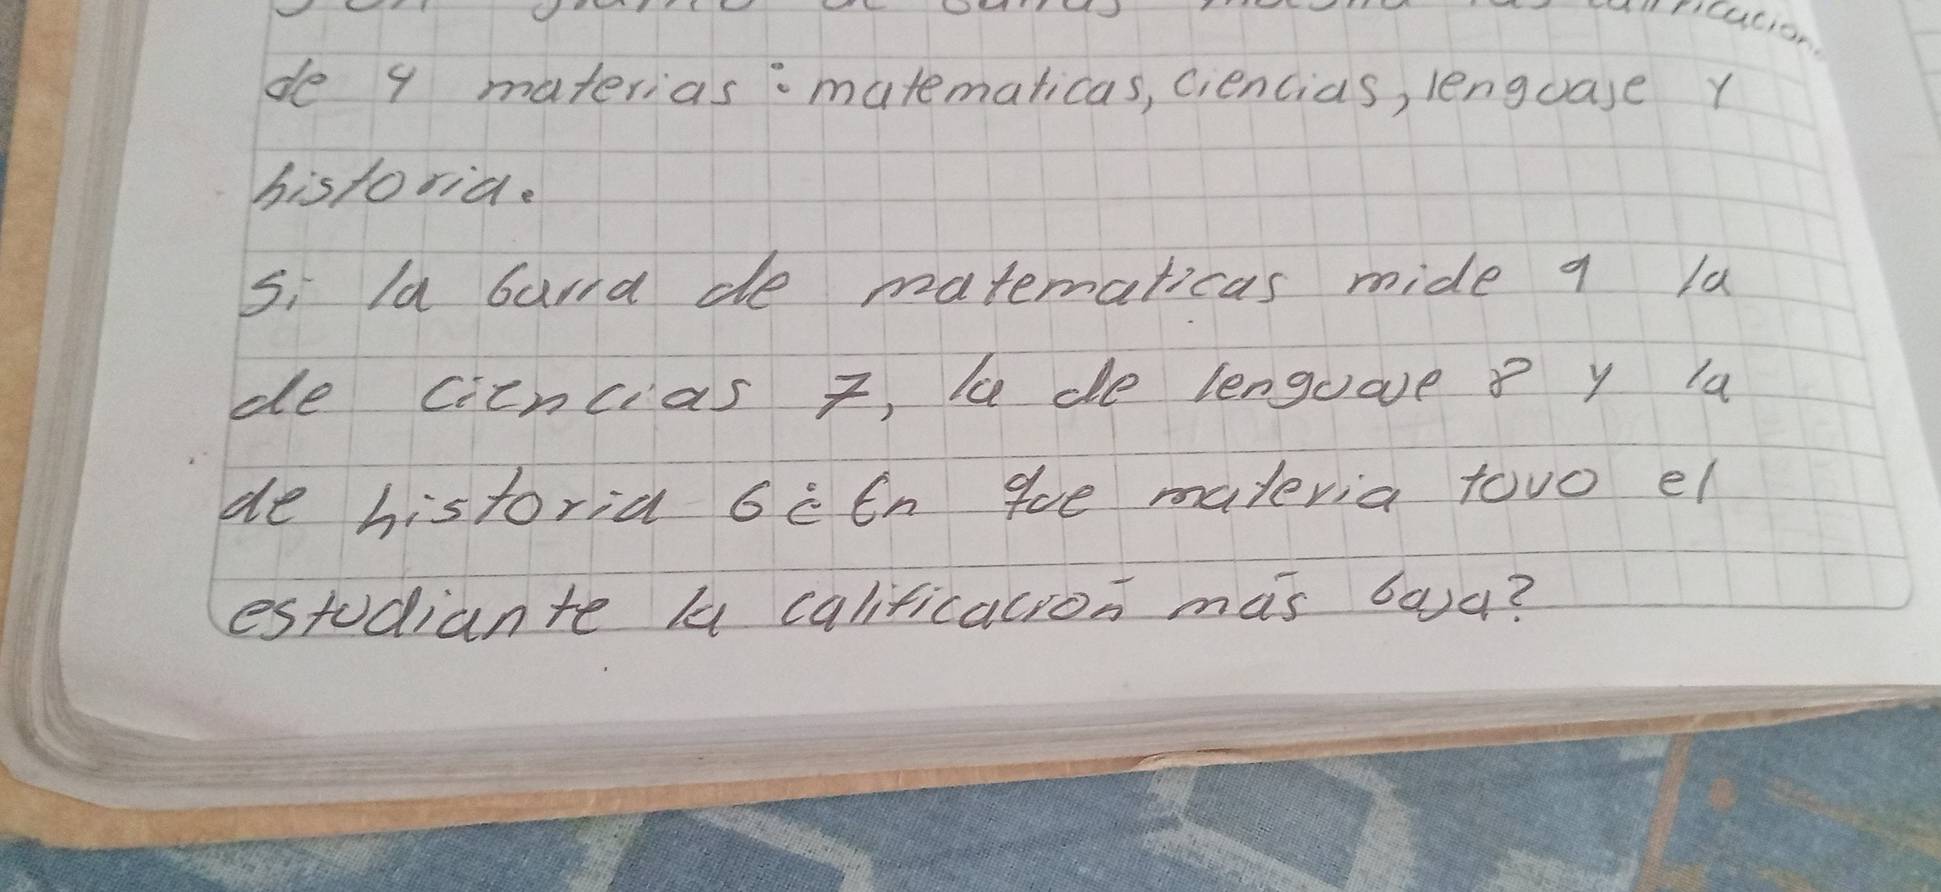 de 4 materias: matematicas, ciencias, lenguaje y
historia.
Si la barra de matematicas mide 9 la
de ciencias 7, la de lenguaje 8 y la
de historia 6 ¿En que materia tuvo el
estudiante la calificación más baja?